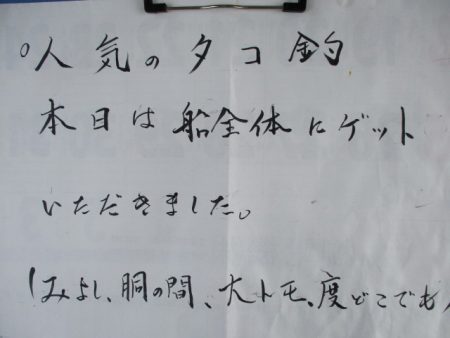 ○人気のタコ釣
本日は船全体にゲット
いただきました。
みよし、胴の間、大トモ、度どこでも